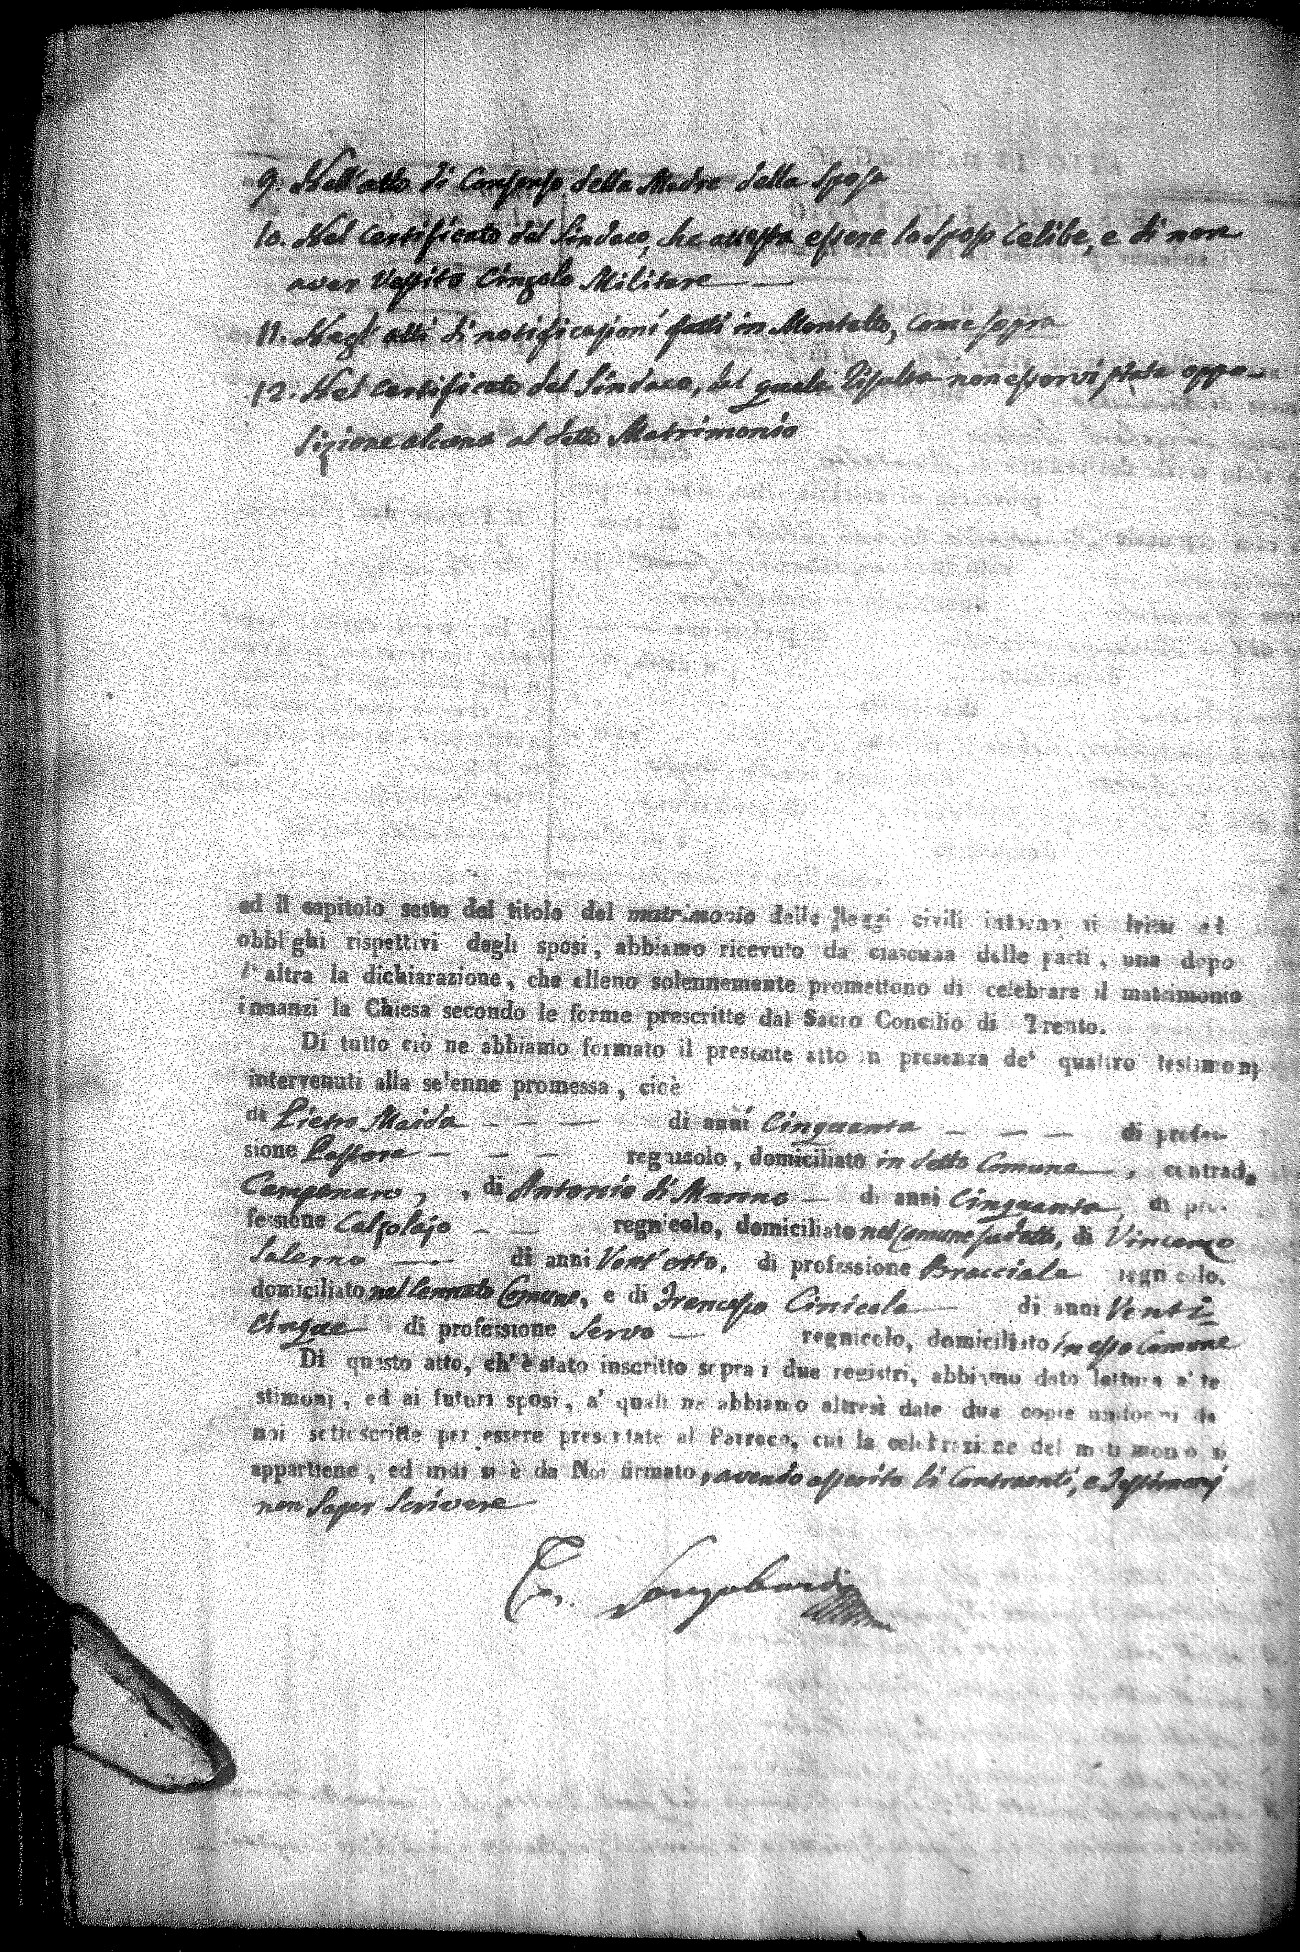 9. Nell'atto di Consenso della Madre della Sposa
10. Nel Certificato del Sindaco, che attesta essere lo Sposo Celibe, e di non
aver Vestito Cingolo Militare
11. Negl'atti di notificazioni fatti in Montalto, come sopra
12. Nel Certificato del Sindaco, dal quale risulta non esservi stata oppo-
sizione alcuna al detto Matrimonio
ed il capitolo sesto del titolo del matrimonio delle leggi civili intorno ai dritti ed
obblighi rispettivi degli sposi, abbiamo ricevuto da ciascuna delle parti, una dopo
l'altra la dichiarazione, che elleno solennemente promettono di celebrare il matrimonio
innanzi la Chiesa secondo le forme prescritte dal Sacro Concilio di Trento.
Di tutto ciò ne abbiamo formato il presente atto in presenza de' quattro testimonj
intervenuti alla solenne promessa, cioè
di Pietro Maida — — — di anni Cinquanta — — — di profes-
sione Pastore — — — regnicolo, domiciliato in detto Comune —, contrada
Camponaro, , di Antonio di Marano — di anni Cinquanta, di pro-
fessione Calzolajo — — regnicolo, domiciliato nel Comune sudetto, di Vincenzo
Salerno — di anni Vent'otto, di professione Bracciale regnicolo,
domiciliato nell'ennato Comune, e di Francesco Cinicola — di anni Venti-
cinque di professione Servo — regnicolo, domiciliato in esso Comune
Di questo atto, ch'è stato inscritto sopra i due registri, abbiamo dato lettura a' te
stimonj, ed ai futuri sposi, a' quali ne abbiamo altresì date due copie uniformi da
noi sottoscritte per essere presentate al Parroco, cui la celebrazione del matrimonio si
appartiene, ed indi si è da Noi firmato, avendo asserito li Contraenti, e Testimonj
non Saper Scrivere
Longobardi